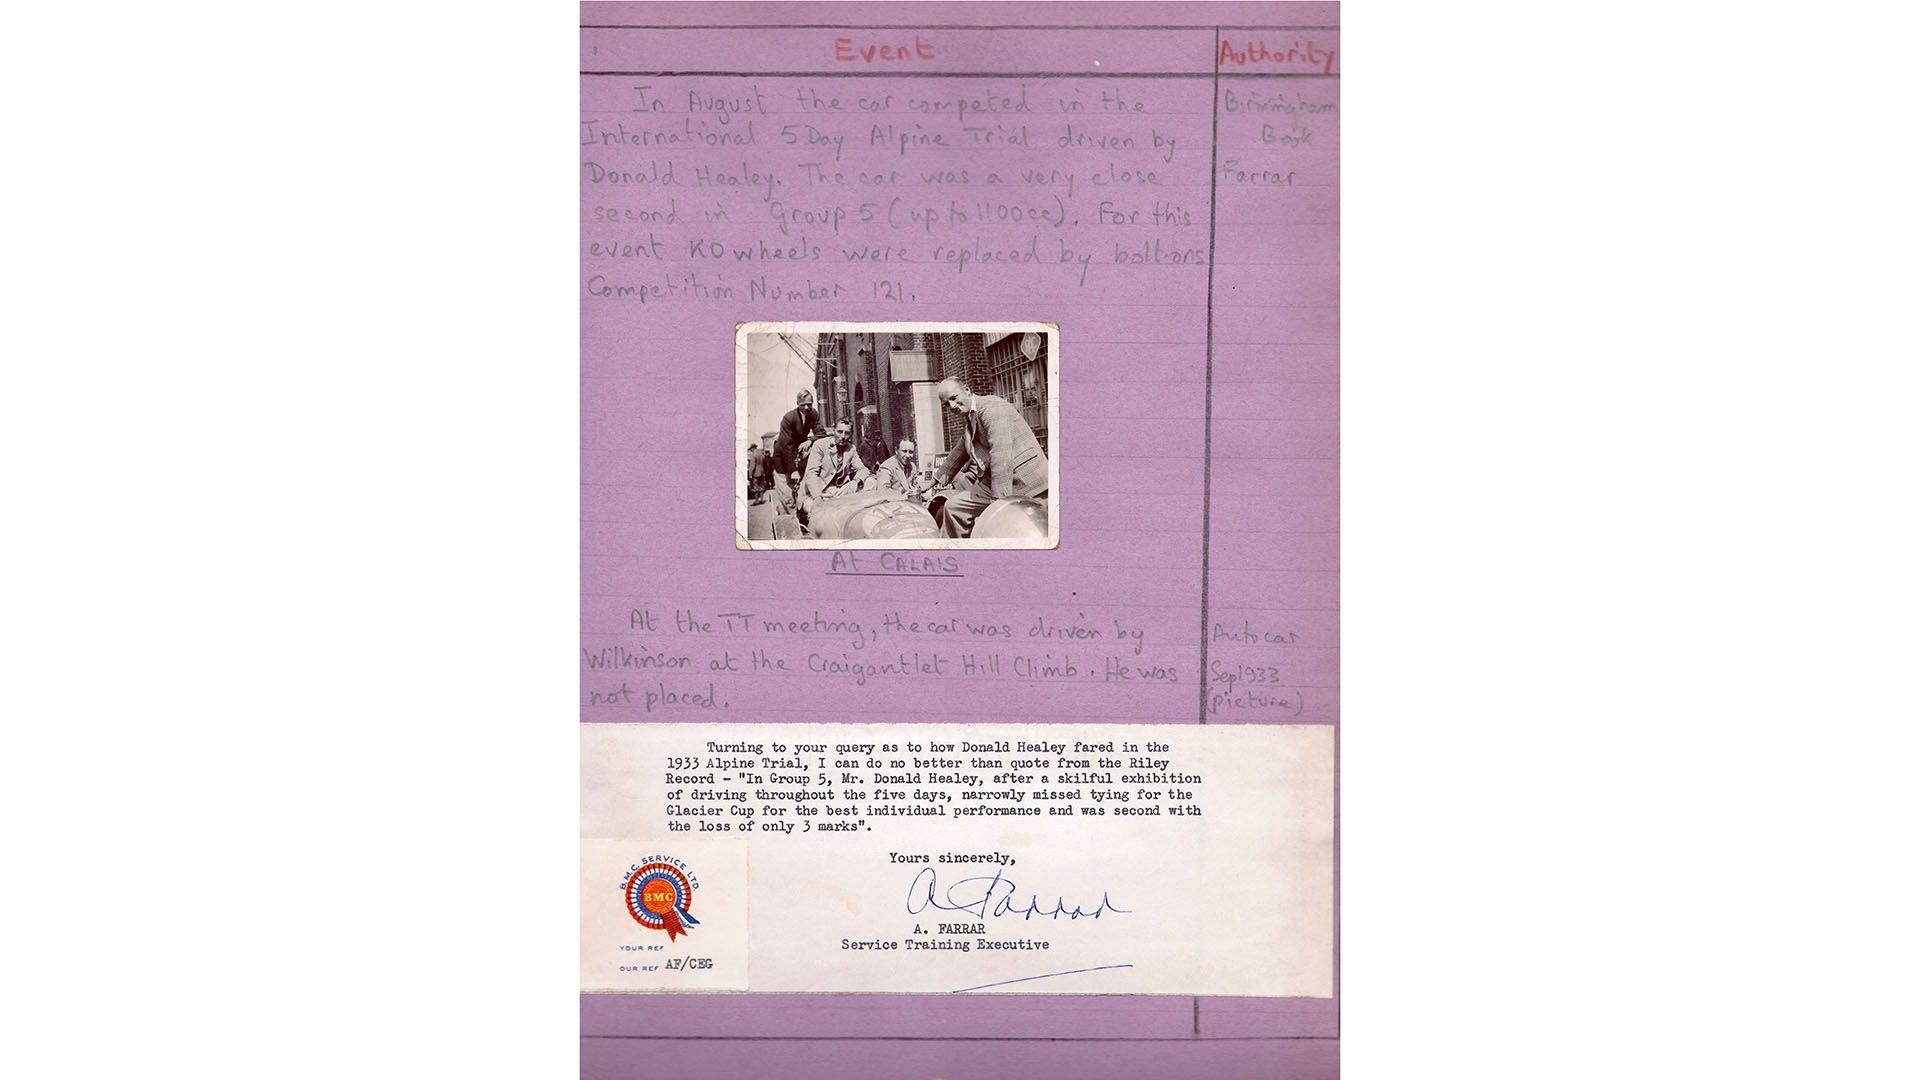 Event
Authority
In August the car competed in the
Birmingham
International 5 Day Alpine Trial driven by
Book
Donald Healey. The car was a very close
Farrar
second in Group 5 (up to 1100cc). For this
event KO wheels were replaced by bolt-ons
Competition Number 121.
At CALAIS
At the TT meeting, the car was driven by
Autocar
Wilkinson at the Craigantlet Hill Climb. He was
Sep 1933
not placed.
(picture)
Turning to your query as to how Donald Healey fared in the
1933 Alpine Trial, I can do no better than quote from the Riley
Record - "In Group 5, Mr. Donald Healey, after a skilful exhibition
of driving throughout the five days, narrowly missed tying for the
Glacier Cup for the best individual performance and was second with
the loss of only 3 marks".
Yours sincerely,
A Farrar
A. FARRAR
Service Training Executive
B.M.C. SERVICE LTD
BMC
YOUR REF
OUR REF AF/CEG